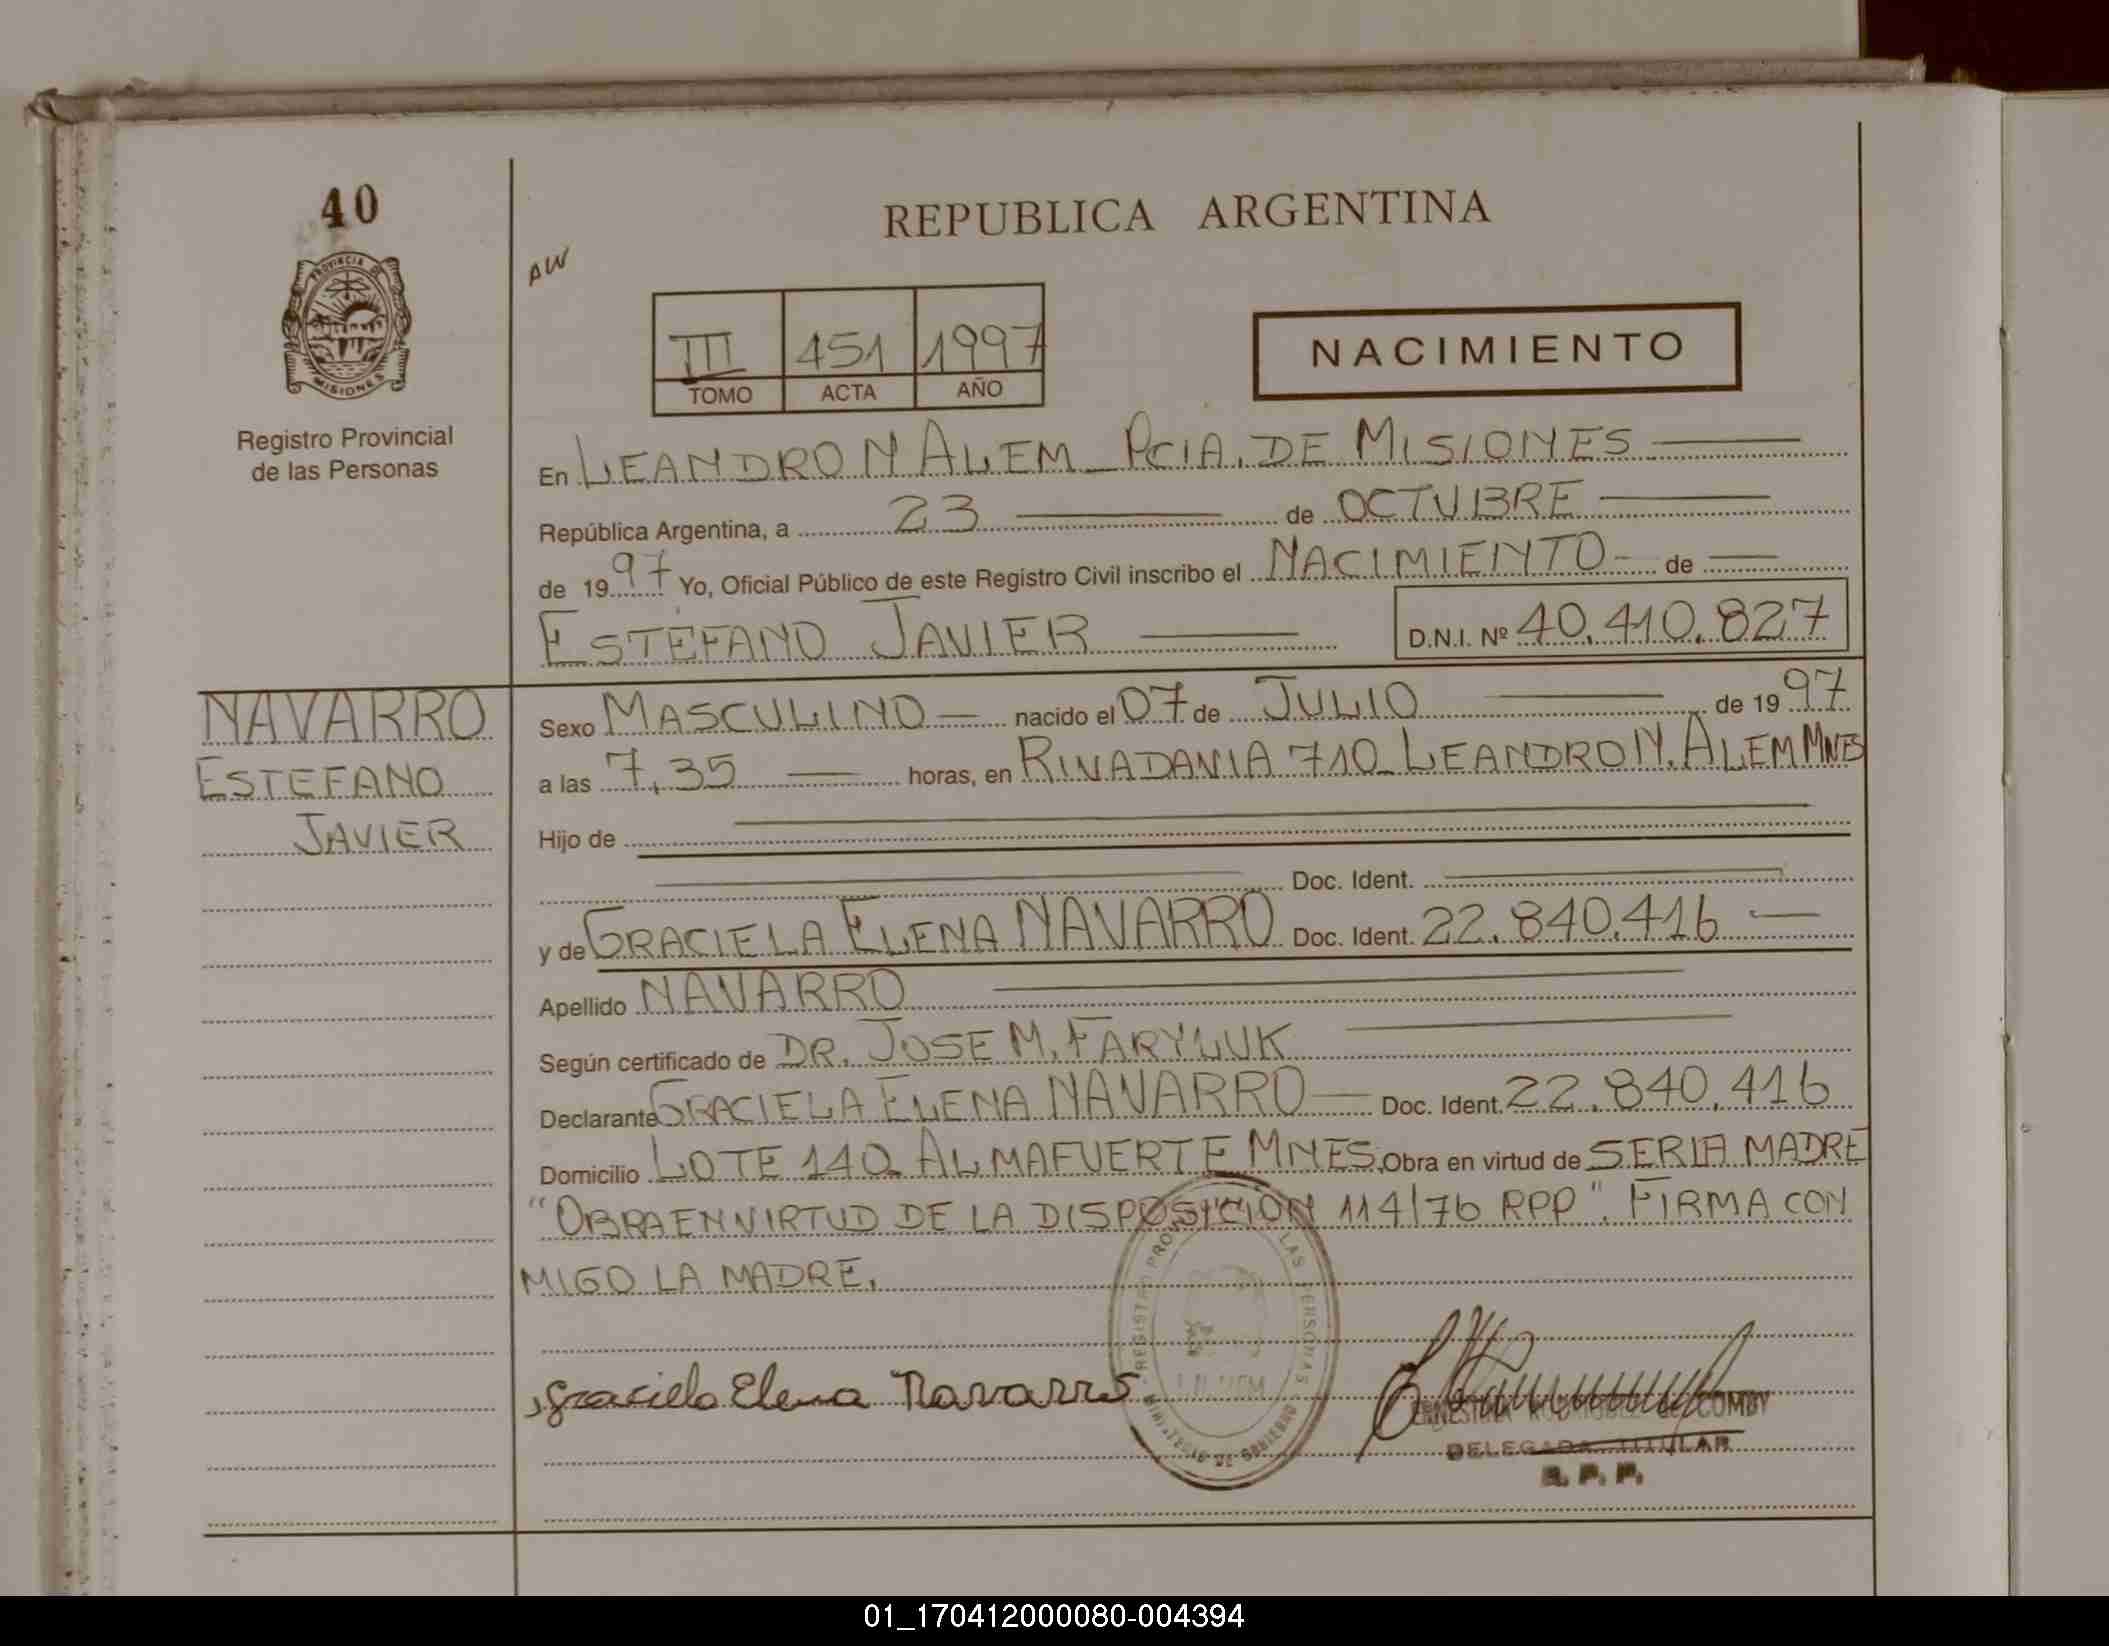 40
REPUBLICA ARGENTINA
AW
PROVINCIA DE
MISIONES
III 451 1997
TOMO ACTA AÑO
NACIMIENTO
Registro Provincial
de las Personas
En LEANDRO N ALEM _ PCIA. DE MISIONES
República Argentina, a 23 de OCTUBRE
de 1997 Yo, Oficial Público de este Registro Civil inscribo el NACIMIENTO de
ESTEFANO JAVIER D.N.I. Nº 40.410.827
NAVARRO
ESTEFANO
JAVIER
Sexo MASCULINO nacido el 07 de JULIO de 1997
a las 7,35 horas, en RIVADAVIA 710_ LEANDRO N. ALEM MNES
Hijo de
Doc. Ident.
y de GRACIELA ELENA NAVARRO Doc. Ident. 22.840.416
Apellido NAVARRO
Según certificado de DR. JOSE M. FARYLUK
Declarante GRACIELA ELENA NAVARRO Doc. Ident. 22.840.416
Domicilio LOTE 140_ ALMAFUERTE MNES. Obra en virtud de SERLA MADRE
"OBRA EN VIRTUD DE LA DISPOSICION 114/76 RPP". FIRMA CON
MIGO LA MADRE.
REGISTRO PROV. LAS PERSONAS
MINISTERIO DE GOBIERNO
Graciela Elena Navarro
RODRIGUEZ de COMBY
DELEGADA TITULAR
R. P. P.
01_170412000080-004394